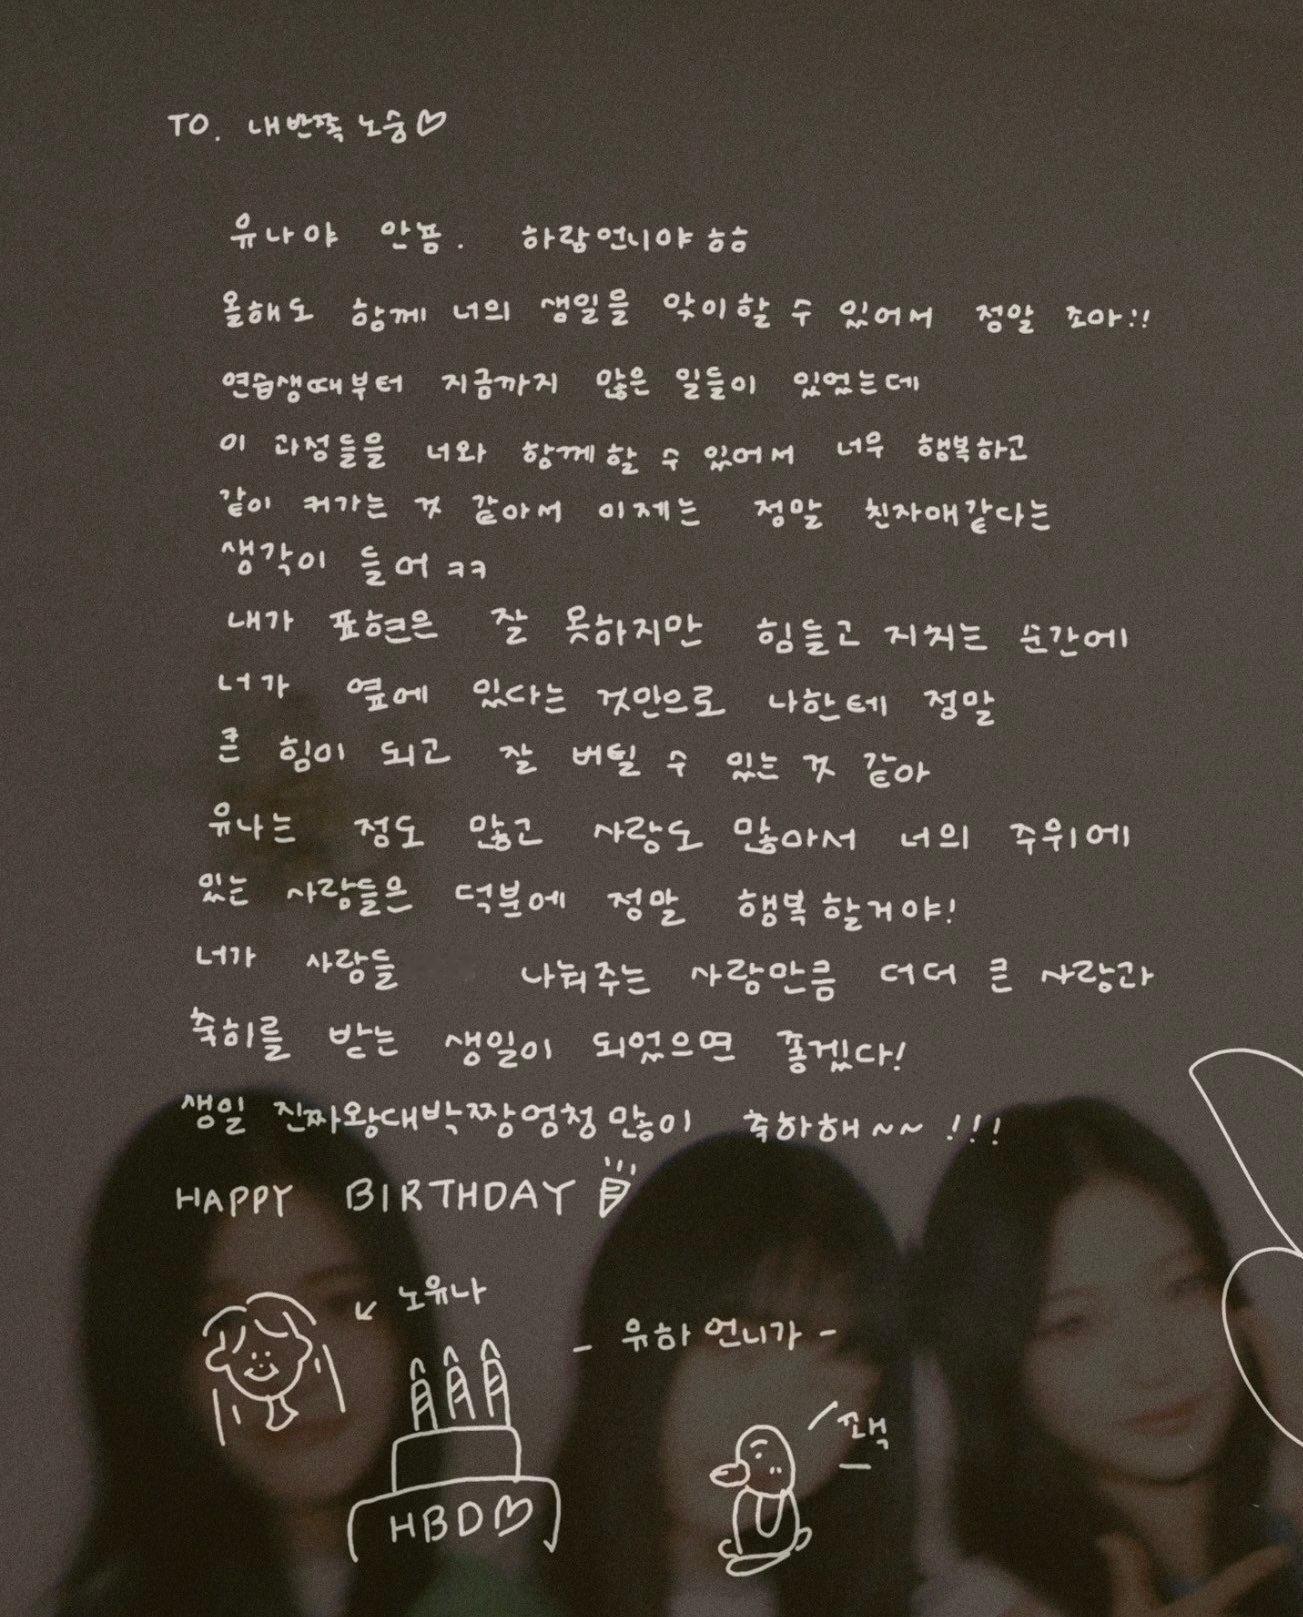 TO. 내반쪽 노승♡
유나야 안뇽. 하람언니야 ㅎㅎ
올해도 함께 너의 생일을 맞이할 수 있어서 정말 조아!!
연습생때부터 지금까지 많은 일들이 있었는데
이 과정들을 너와 함께할 수 있어서 너무 행복하고
같이 커가는 것 같아서 이제는 정말 친자매같다는
생각이 들어 ㅋㅋ
내가 표현은 잘 못하지만 힘들고 지치는 순간에
너가 옆에 있다는 것만으로 나한테 정말
큰 힘이 되고 잘 버틸 수 있는 것 같아
유나는 정도 많고 사랑도 많아서 너의 주위에
있는 사람들은 덕분에 정말 행복할거야!
너가 사람들 나눠주는 사랑만큼 더더 큰 사랑과
축하를 받는 생일이 되었으면 좋겠다!
생일 진짜왕대박짱엄청많이 축하해~~!!!
HAPPY BIRTHDAY
노유나
- 유하 언니가 -
꼬넥
HBD♡